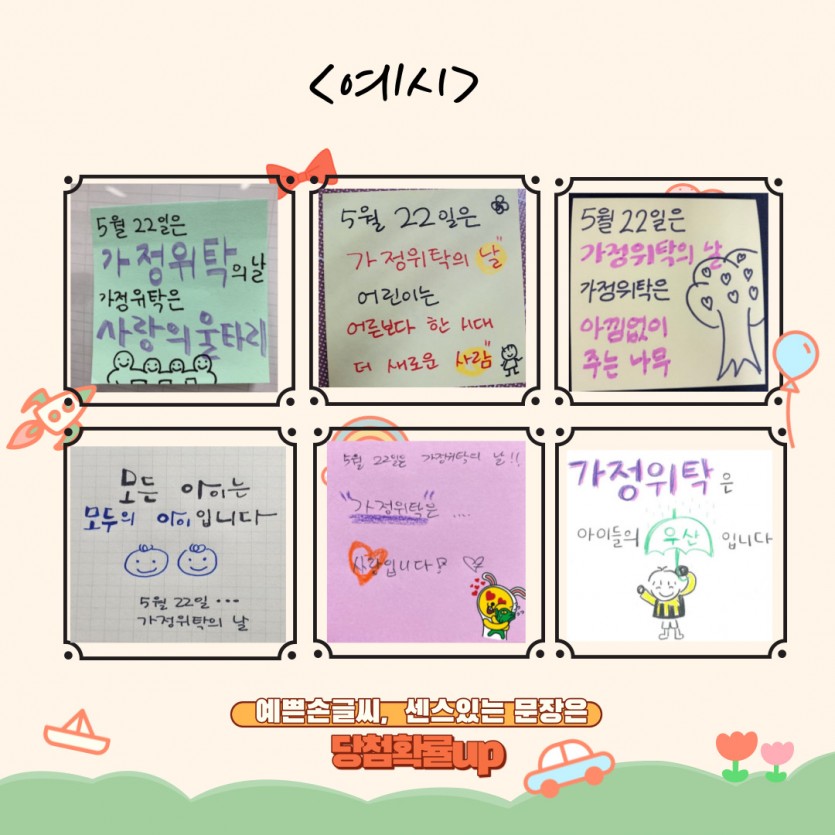 <예시>
5월 22일은
가정위탁의 날
가정위탁은
사랑의 울타리
5월 22일은
가정위탁의 날"
어린이는
어른보다 한 시대
더 새로운 사람"
5월 22일은
가정위탁의 날
가정위탁은
아낌없이
주는 나무
모든 아이는
모두의 아이입니다
5월 22일 ...
가정위탁의 날
5월 22일은 가정위탁의 날!!
"가정위탁"은 ....
사랑입니다!
가정위탁은
아이들의 우산 입니다
예쁜손글씨, 센스있는 문장은
당첨확률up